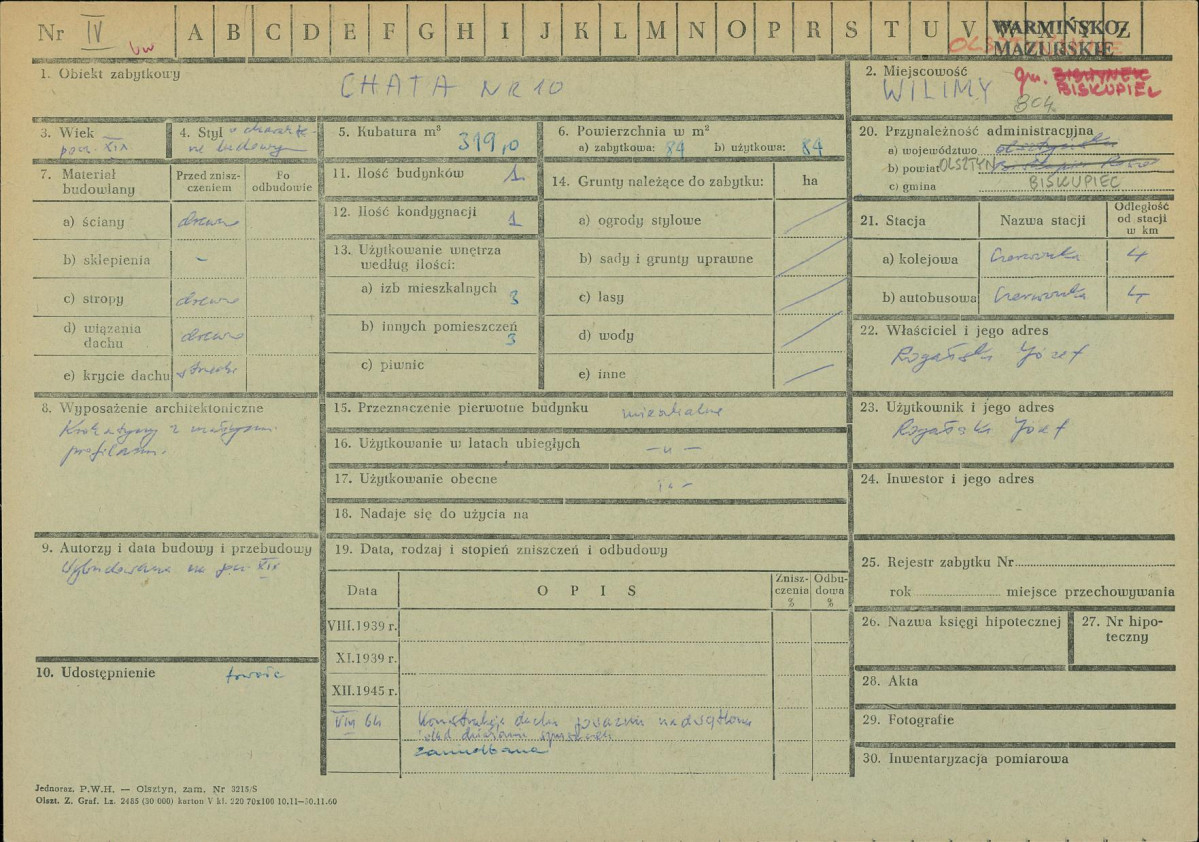 Nr IV A B C D E F G H I J K L M N O P R S T U V Z
WARMIŃSKO
MAZURSKIE
1. Obiekt zabytkowy
CHATA NR 10
2. Miejscowość
WILIMY gm. BISKUPIEC
3. Wiek
pocz. XIX
4. Styl
5. Kubatura m³ 319,0
6. Powierzchnia w m²
a) zabytkowa: 84 b) użytkowa: 84
7. Materiał budowlany
Przed zniszczeniem
Po odbudowie
a) ściany drewno
b) sklepienia -
c) stropy drewno
d) wiązania dachu drewno
e) krycie dachu
8. Wyposażenie architektoniczne
profilami.
9. Autorzy i data budowy i przebudowy
Wybudowana na pocz. XIX
10. Udostępnienie
11. Ilość budynków 1
12. Ilość kondygnacji 1
13. Użytkowanie wnętrza według ilości:
a) izb mieszkalnych 3
b) innych pomieszczeń 3
c) piwnic
14. Grunty należące do zabytku: ha
a) ogrody stylowe
b) sady i grunty uprawne
c) lasy
d) wody
e) inne
15. Przeznaczenie pierwotne budynku mieszkalne
16. Użytkowanie w latach ubiegłych -„-
17. Użytkowanie obecne -„-
18. Nadaje się do użycia na
19. Data, rodzaj i stopień zniszczeń i odbudowy
Data
O P I S
Zniszczenia %
Odbudowa %
VIII.1939 r.
XI.1939 r.
XII.1945 r.
VIII 64 Konstrukcja dachu poważnie nadwątlona
20. Przynależność administracyjna
a) województwo
b) powiat OLSZTYN
c) gmina BISKUPIEC
21. Stacja
Nazwa stacji
Odległość od stacji w km
a) kolejowa Czerwonka 4
b) autobusowa Czerwonka 4
22. Właściciel i jego adres
Józef
23. Użytkownik i jego adres
Józef
24. Inwestor i jego adres
25. Rejestr zabytku Nr
rok miejsce przechowywania
26. Nazwa księgi hipotecznej
27. Nr hipoteczny
28. Akta
29. Fotografie
30. Inwentaryzacja pomiarowa
Jednoraz. P.W.H. — Olsztyn, zam. Nr 3215/S
Olszt. Z. Graf. Lz. 2455 (30 000) karton V kl. 220 70x100 10.11—30.11.60